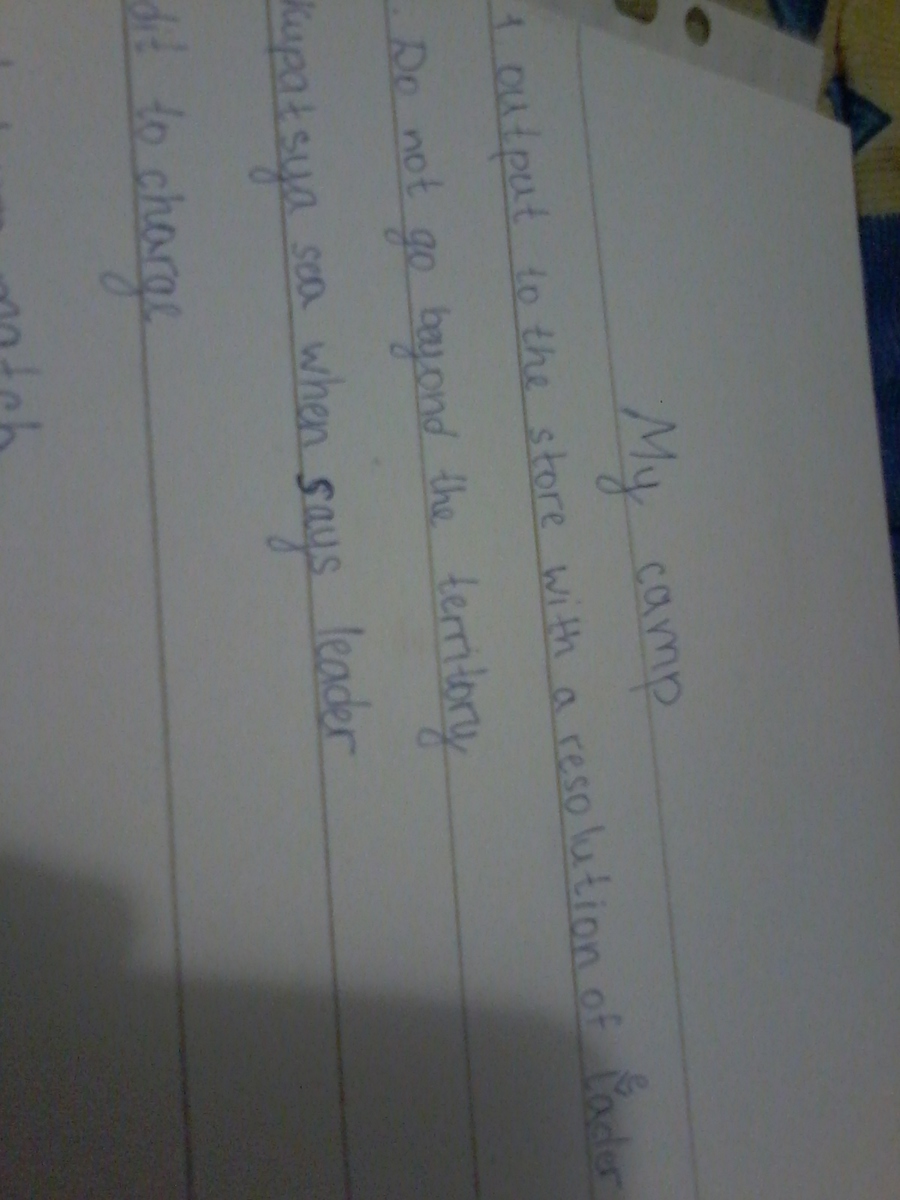 My camp
1 output to the store with a resolution of leader
. Do not go beyond the territory
kupatsya sea when says leader
dit to charge